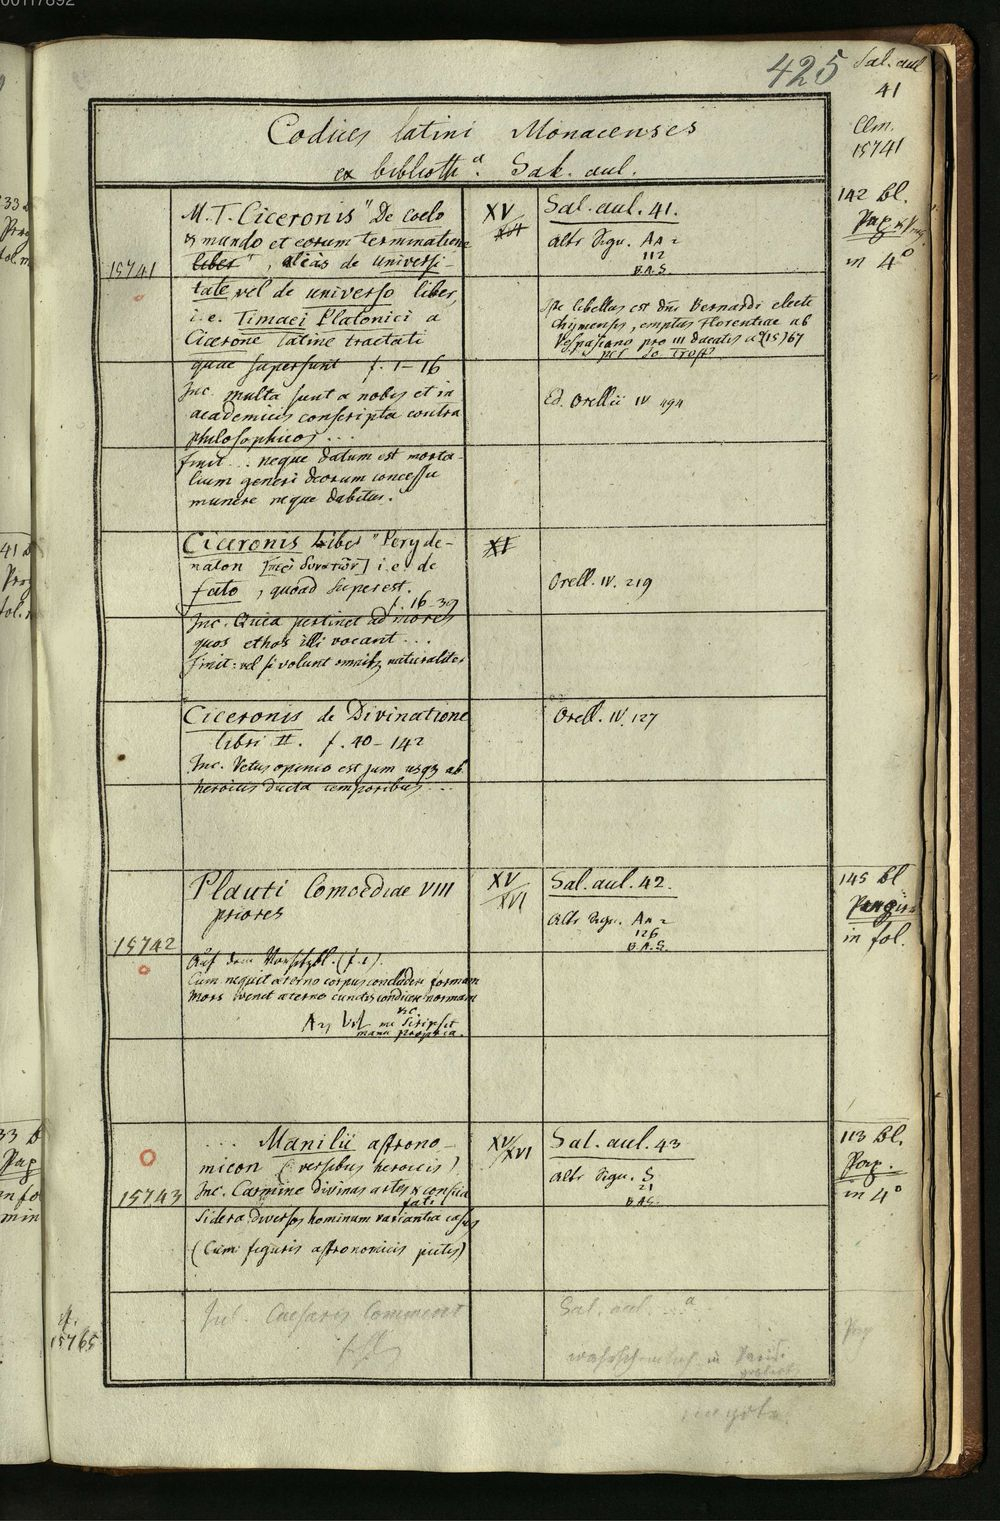 00117892
425
Sal. aul
41
Clm.
15741
Codices latini Monacenses
ex biblioth.ª Sal. aul.
15741
M. T. Ciceronis "De coelo
& mundo et eorum terminatione
liber", aliàs de universi-
tate vel de universo liber,
i. e. Timaei Platonici a
Cicerone latine tractati
quae supersunt f. 1-16
Inc. multa sunt a nobis et in
academicis conscripta contra
philosophicos ...
finit ... neque datum est morta-
lium generi deorum concessu
munere neque dabitur.
XV
XVI
Sal. aul. 41.
Altr Sign. An 2
112
B.A.S.
Iste libellus est dni Bernardi electi
Chymensis, emptus florentiae ab
Vespasiano pro III ducatis a° (15)67
per
Ed. Orellii IV 494
142 bl.
Pap
in 4°
Ciceronis Liber "Peryde-
naton [περὶ δυνατῶν] i. e. de
fato, quoad superest.
f. 16-39
Inc. Quia pertinet ad mores
quos ethos illi vocant ...
finit: vel si volunt omnib; naturaliter
XV
Orell. IV. 219
Ciceronis de Divinatione
libri II. f. 40-142
Inc. Vetus opinio est jam usqz ab
heroicis ducta temporibus ...
Orell. IV. 127
15742
Plauti Comoediae VIII
priores
Auf dem Vorsetzbl. (f. 1)
Cum nequit aterno corpus concludere formam
Mors venit aterno cunctos condicere normam
me scripsit
manu propria.
XV
XVI
Sal. aul. 42.
Altr Sign. An 2
126
B.A.S.
145 bl
in fol.
15743
... Manilii astrono-
micon (versibus heroicis)
Inc. Carmine divinas artes & conscia
fati
Sidera diversos hominum variantia casus
(Cum figuris astronomicis pictis)
XV/XVI
Sal. aul. 43
Altr Sign. S.
21
B.A.S.
113 Bl.
Pap.
in 4°
cf.
15765
Jul. Caesaris Comment
Sal. aul.
wahrscheinlich in Paris
Pap